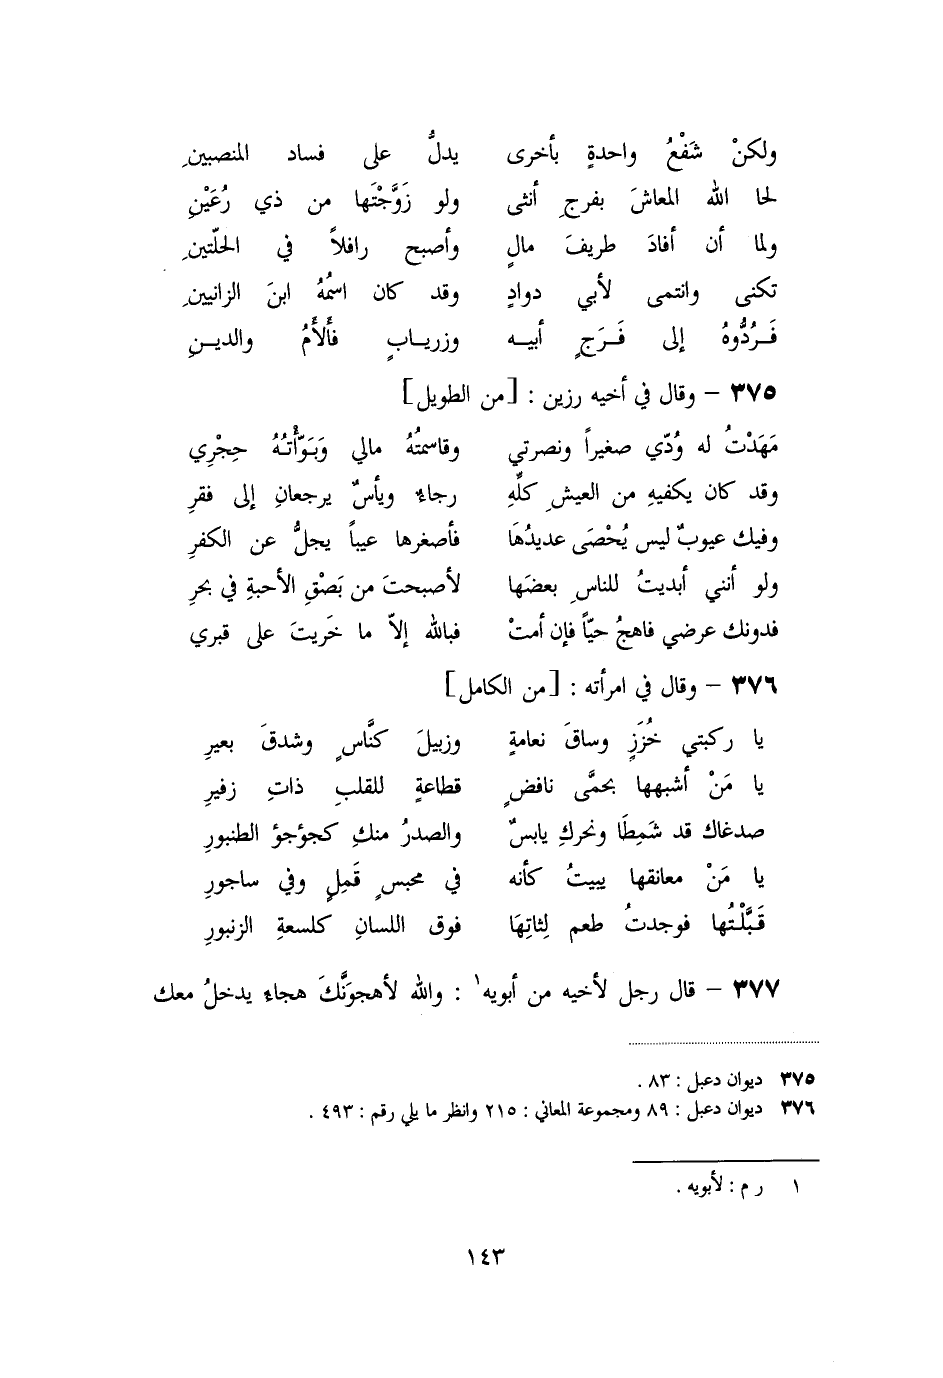 ولكنْ شَفْعُ واحدةٍ بأخرى يدلُّ على فساد المنصبينِ
لحا الله المعاشَ بفرجِ أنثى ولو زَوَّجْتَها من ذي رُعَيْنِ
ولما أن أفادَ طريفَ مالٍ وأصبح رافلاً في الحلّتينِ
تكنى وانتمى لأبي دوادٍ وقد كان اسمُهُ ابنَ الزانيينِ
فَـرُدُّوهُ إلى فَـرَجٍ أبيـه وزريـابٍ فَأَلأَمُ والديـنِ
٣٧٥ – وقال في أخيه رزين : [من الطويل]
مَهَدْتُ له وُدّي صغيراً ونصرتي وقاسمتُهُ مالي وَبَوَّأْتـهُ حِجْرِي
وقد كان يكفيهِ من العيشِ كلِّهِ رجاءٌ ويأسٌ يرجعانِ إلى فقرِ
وفيك عيوبٌ ليس يُحْصَى عديدُهَا فأصغرها عيباً يجلُّ عن الكفرِ
ولو أنني أبديتُ للناسِ بعضَها لأصبحتَ من بَصْقِ الأحبةِ في بحرِ
فدونك عرضي فاهجُ حيّاً فإن أمتْ فبالله إلاّ ما خَريتَ على قبري
٣٧٦ – وقال في امرأته : [من الكامل]
يا ركبتي خُزَزٍ وساقَ نعامةٍ وزبيلَ كنَّاسٍ وشدقَ بعيرِ
يا مَنْ أشبهها بحمَّى نافضٍ قطاعةٍ للقلبِ ذاتِ زفيرِ
صدغاك قد شَمِطَا ونحركِ يابسٌ والصدرُ منكِ كجؤجؤ الطنبورِ
يا مَنْ معانقها يبيتُ كأنه في محبسٍ قَمِلٍ وفي ساجورِ
قَبَّلْتُها فوجدتُ طعم لِثاتِهَا فوق اللسانِ كلسعةِ الزنبورِ
٣٧٧ – قال رجل لأخيه من أبويه¹ : والله لأهجوَنَّكَ هجاء يدخلُ معك
٣٧٥ ديوان دعبل : ٨٣ .
٣٧٦ ديوان دعبل : ٨٩ ومجموعة المعاني : ٢١٥ وانظر ما يلي رقم : ٤٩٣ .
١ ر م : لأبويه .
١٤٣